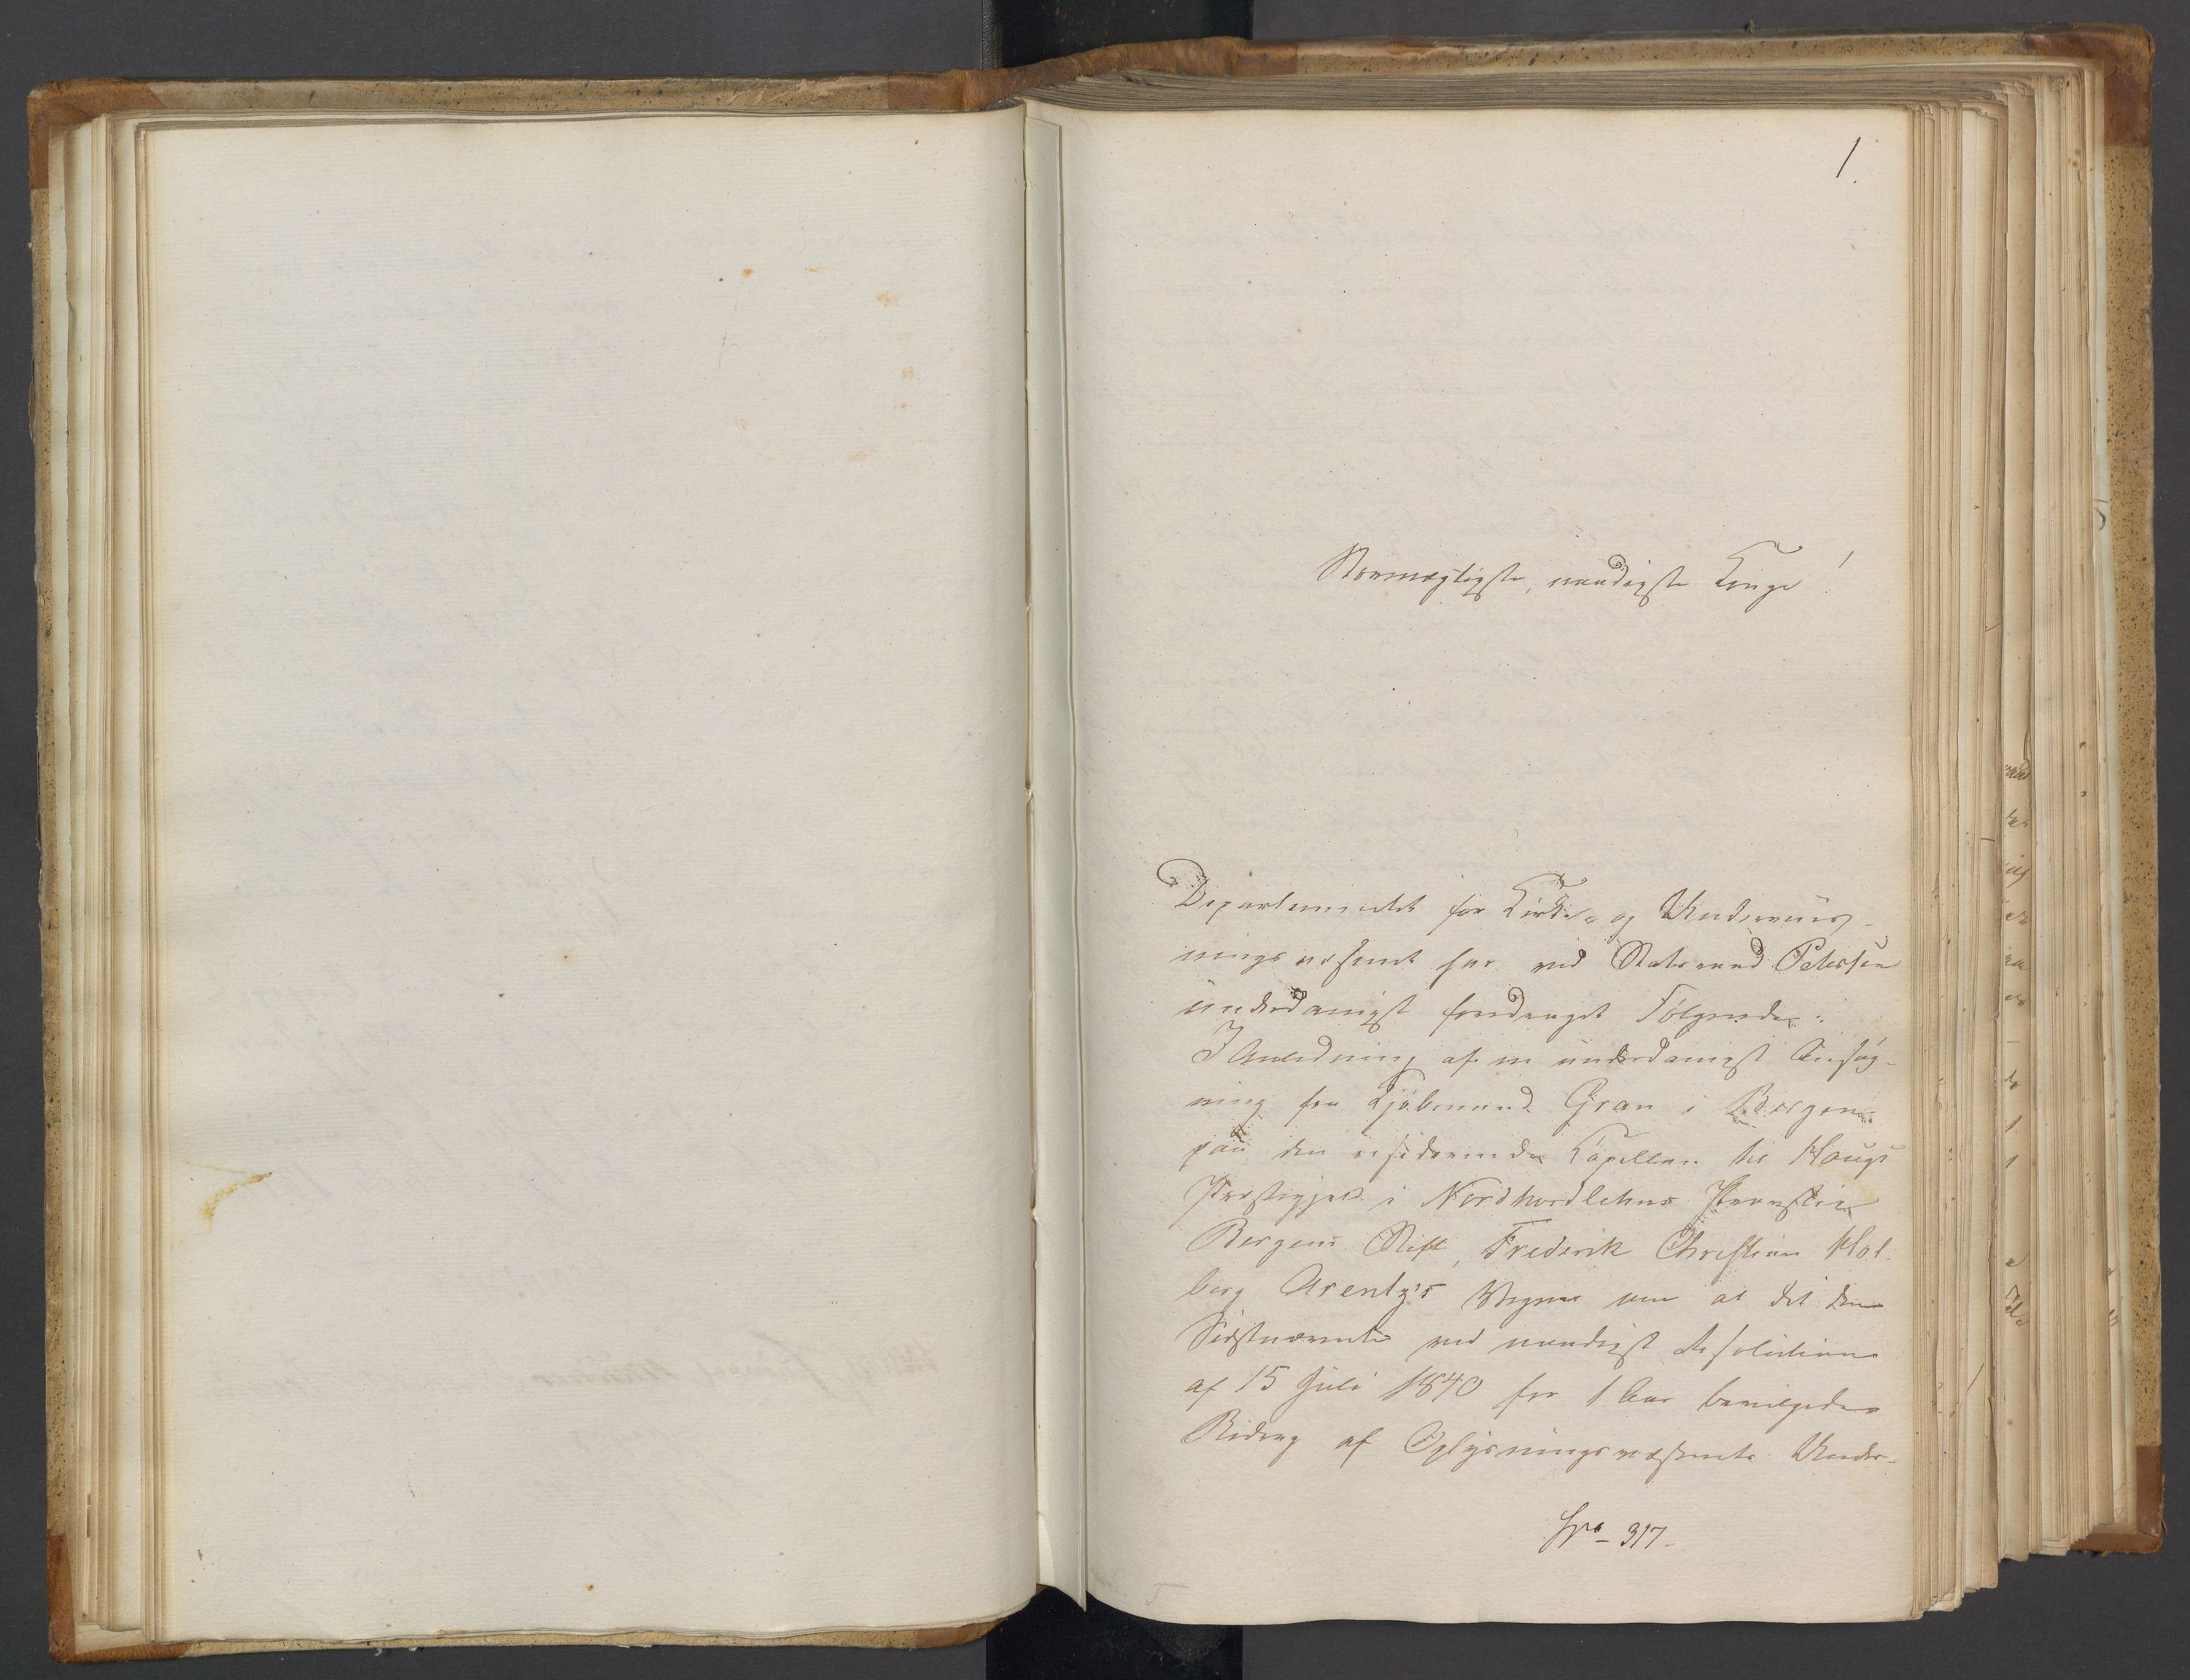 1.
Stormægtigste, naadigste Konge!
Departementet for Kirke- og Underviis-
ningsvæsenet har ved Statsraad Petersen
underdanigst foredraget Følgende:
I Anledning af en underdanigst Ansøg-
ning fra Kjøbmand Gran i Bergen
paa den residerende Capellan til Hougs
Præstegjeld i Nordhordlehns Provstie
Bergens Stift, Frederik Christian Hol-
berg Arentz's Vegne om at det den
Sidstnævnte ved naadigst Resolution
af 15 Juli 1840 for 1 Aar bevilgede
Bidrag af Oplysningsvæsenets Under-
No 317.